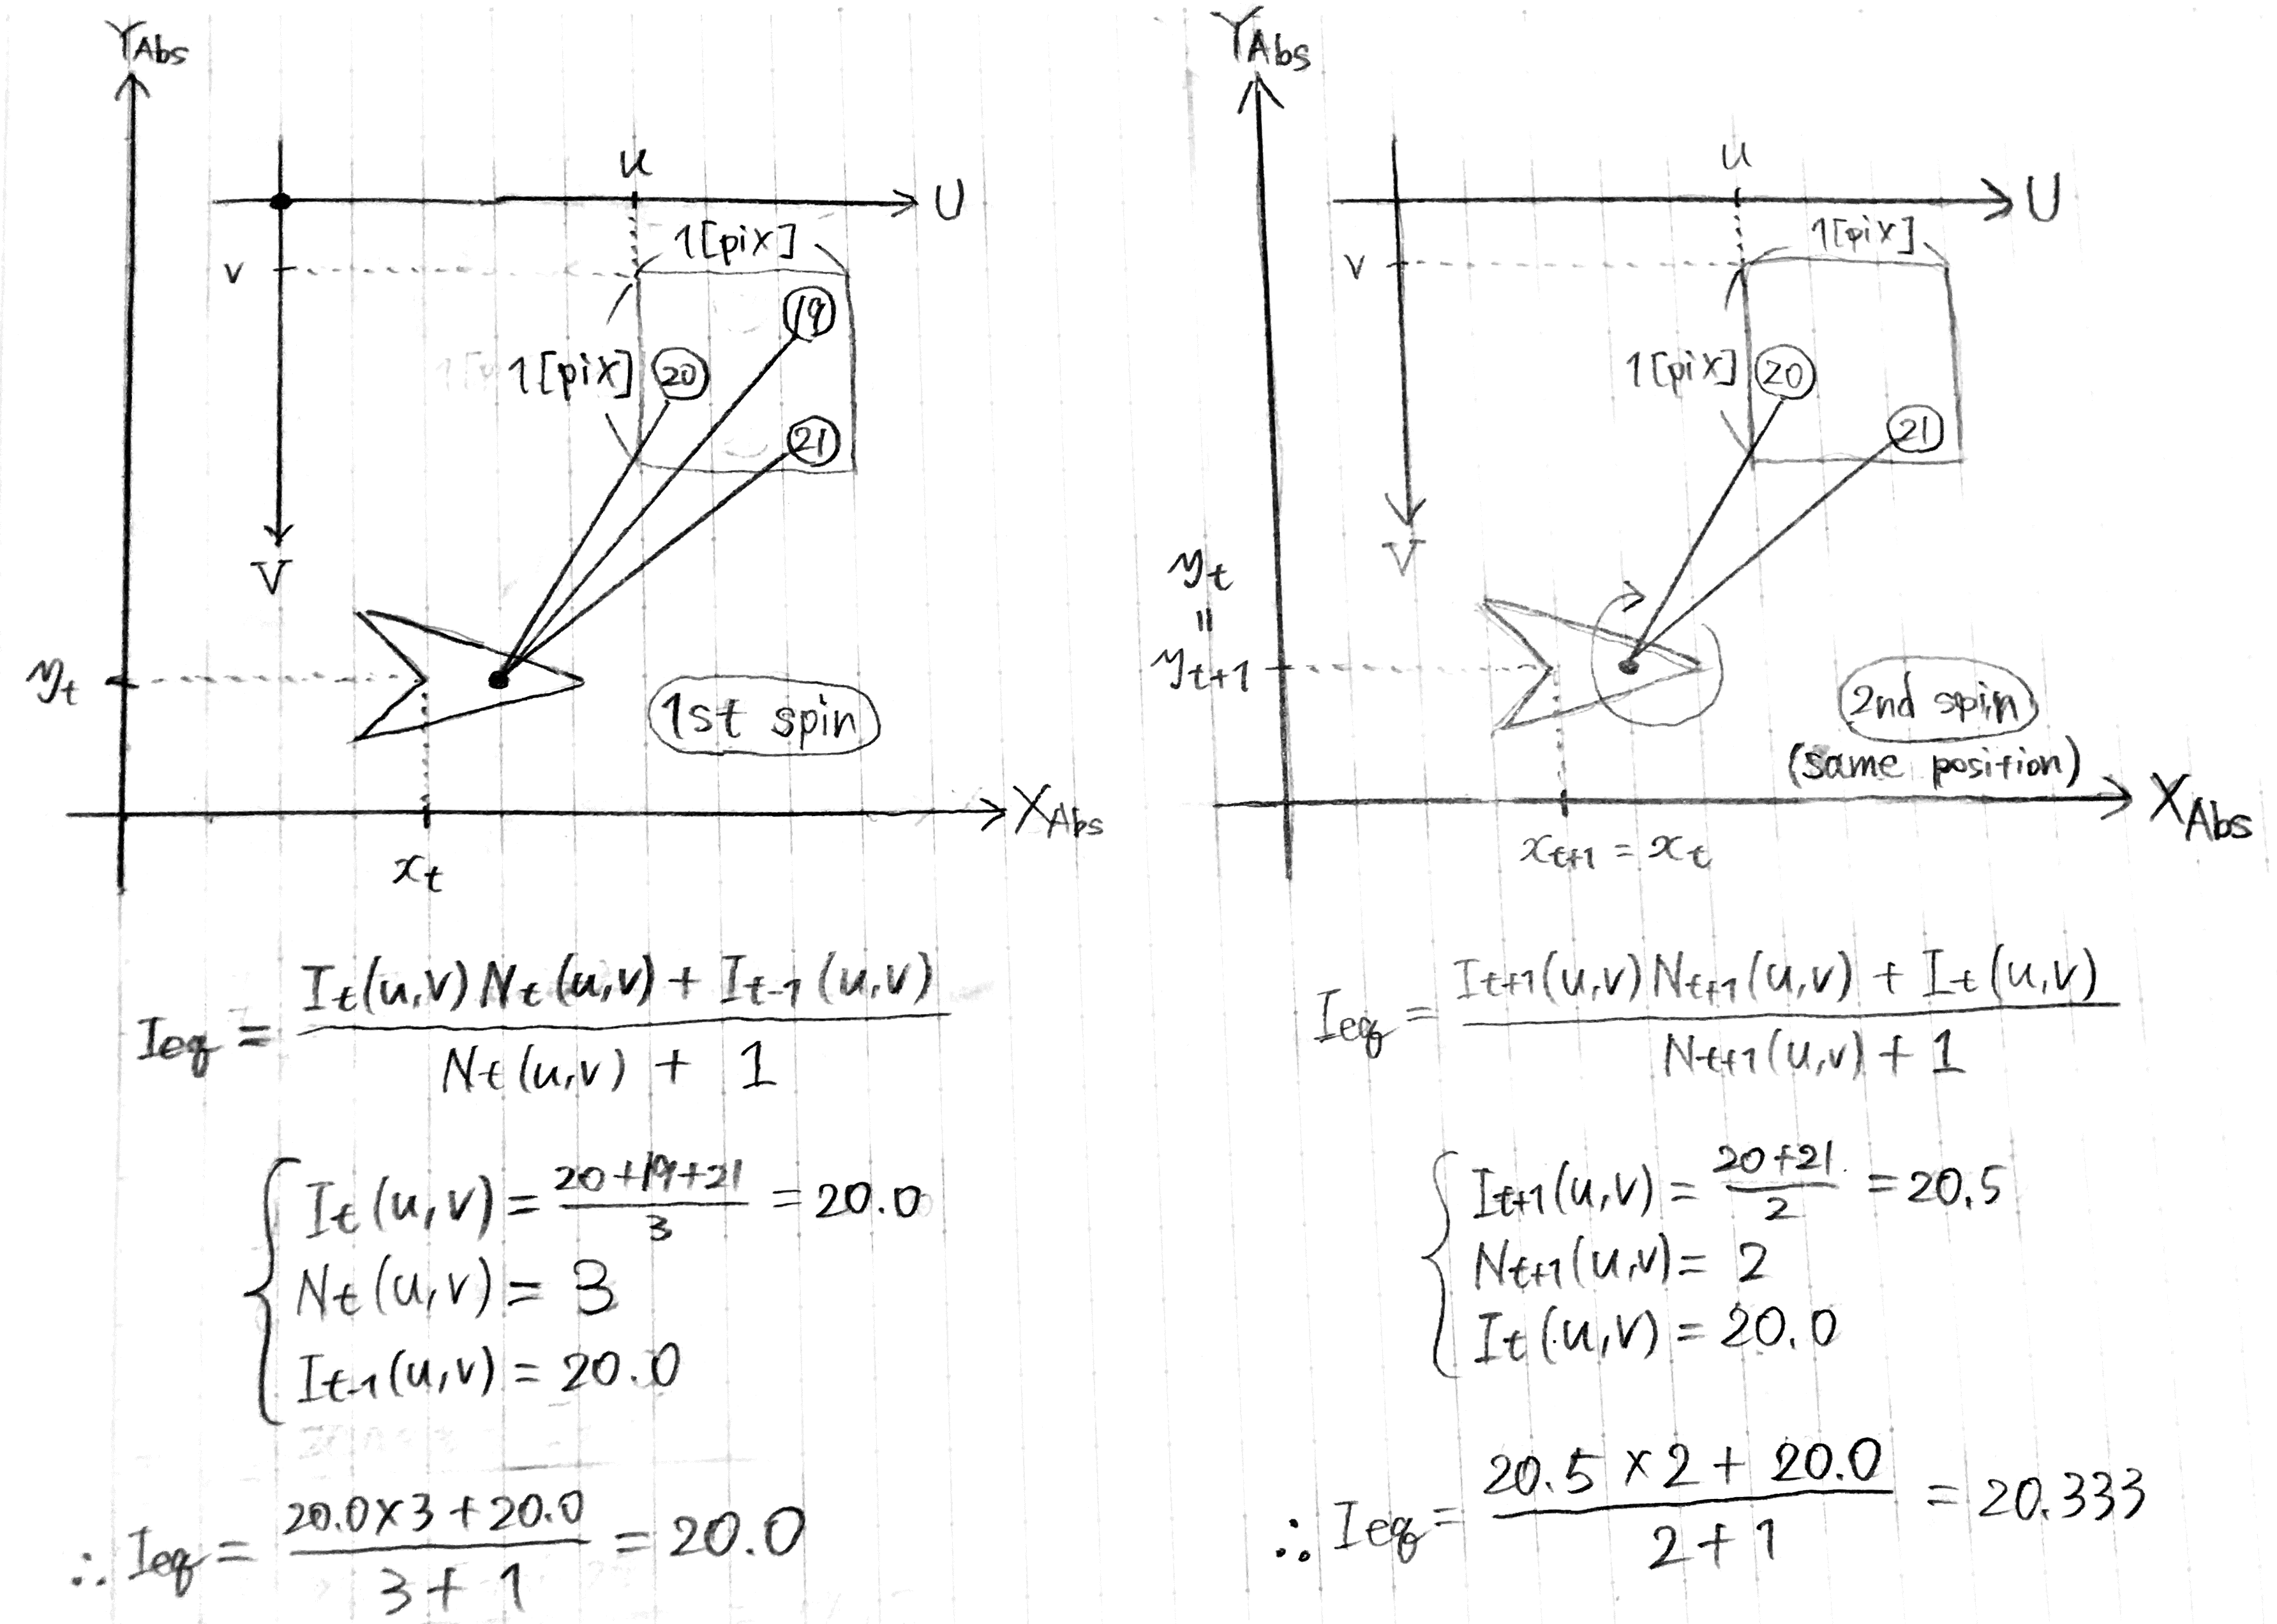 Y_Abs
u
U
1[pix]
v
19
1[pix]
20
21
V
y_t
1st spin
X_Abs
x_t
I_eq = (I_t(u,v) N_t(u,v) + I_t-1(u,v)) / (N_t(u,v) + 1)
I_t(u,v) = (20+19+21) / 3 = 20.0
N_t(u,v) = 3
I_t-1(u,v) = 20.0
∴ I_eq = (20.0×3 + 20.0) / (3 + 1) = 20.0
Y_Abs
u
U
1[pix]
v
1[pix]
20
21
V
y_t
=
y_t+1
2nd spin
(same position)
X_Abs
x_t+1 = x_t
I_eq = (I_t+1(u,v) N_t+1(u,v) + I_t(u,v)) / (N_t+1(u,v) + 1)
I_t+1(u,v) = (20+21) / 2 = 20.5
N_t+1(u,v) = 2
I_t(u,v) = 20.0
∴ I_eq = (20.5 × 2 + 20.0) / (2 + 1) = 20.333